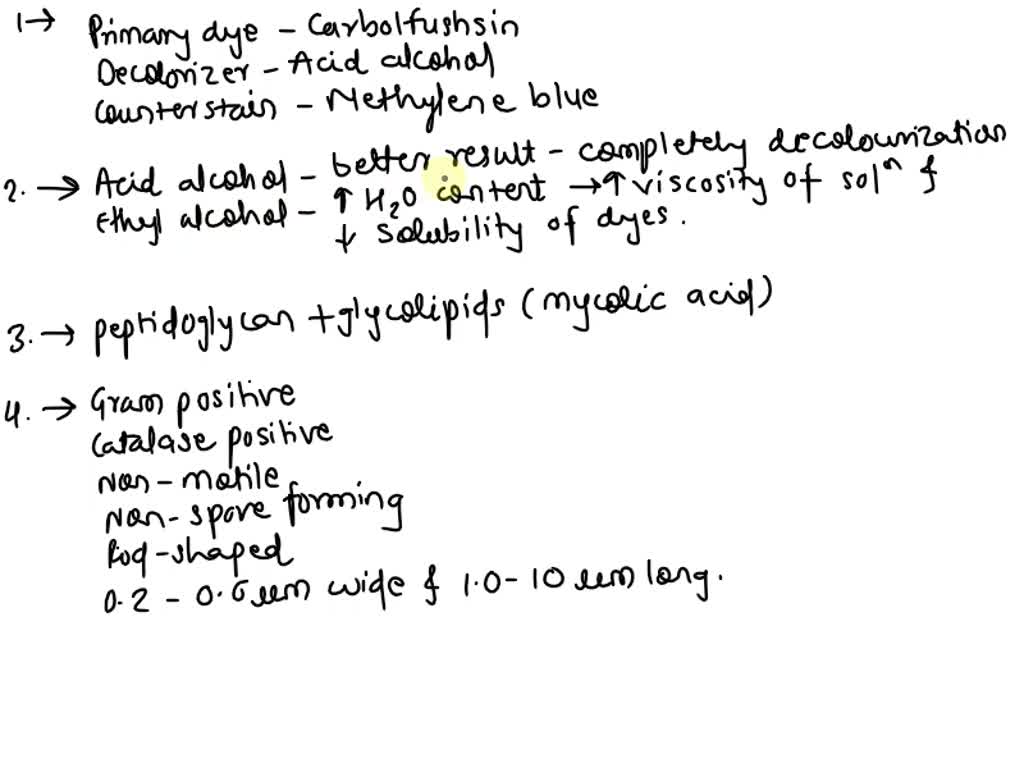 1→ Primary dye - Carbolfushsin
Decolorizer - Acid alcohol
Counterstain - Methylene blue
2. → Acid alcohol - better result - completely decolourization
Ethyl alcohol - ↑ H₂O content → ↑ viscosity of solⁿ &
↓ solubility of dyes.
3. → peptidoglycan + glycolipids (mycolic acid)
4. → Gram positive
Catalase positive
Non - motile
Non - spore forming
Rod - shaped
0.2 - 0.6 um wide & 1.0 - 10 um long.